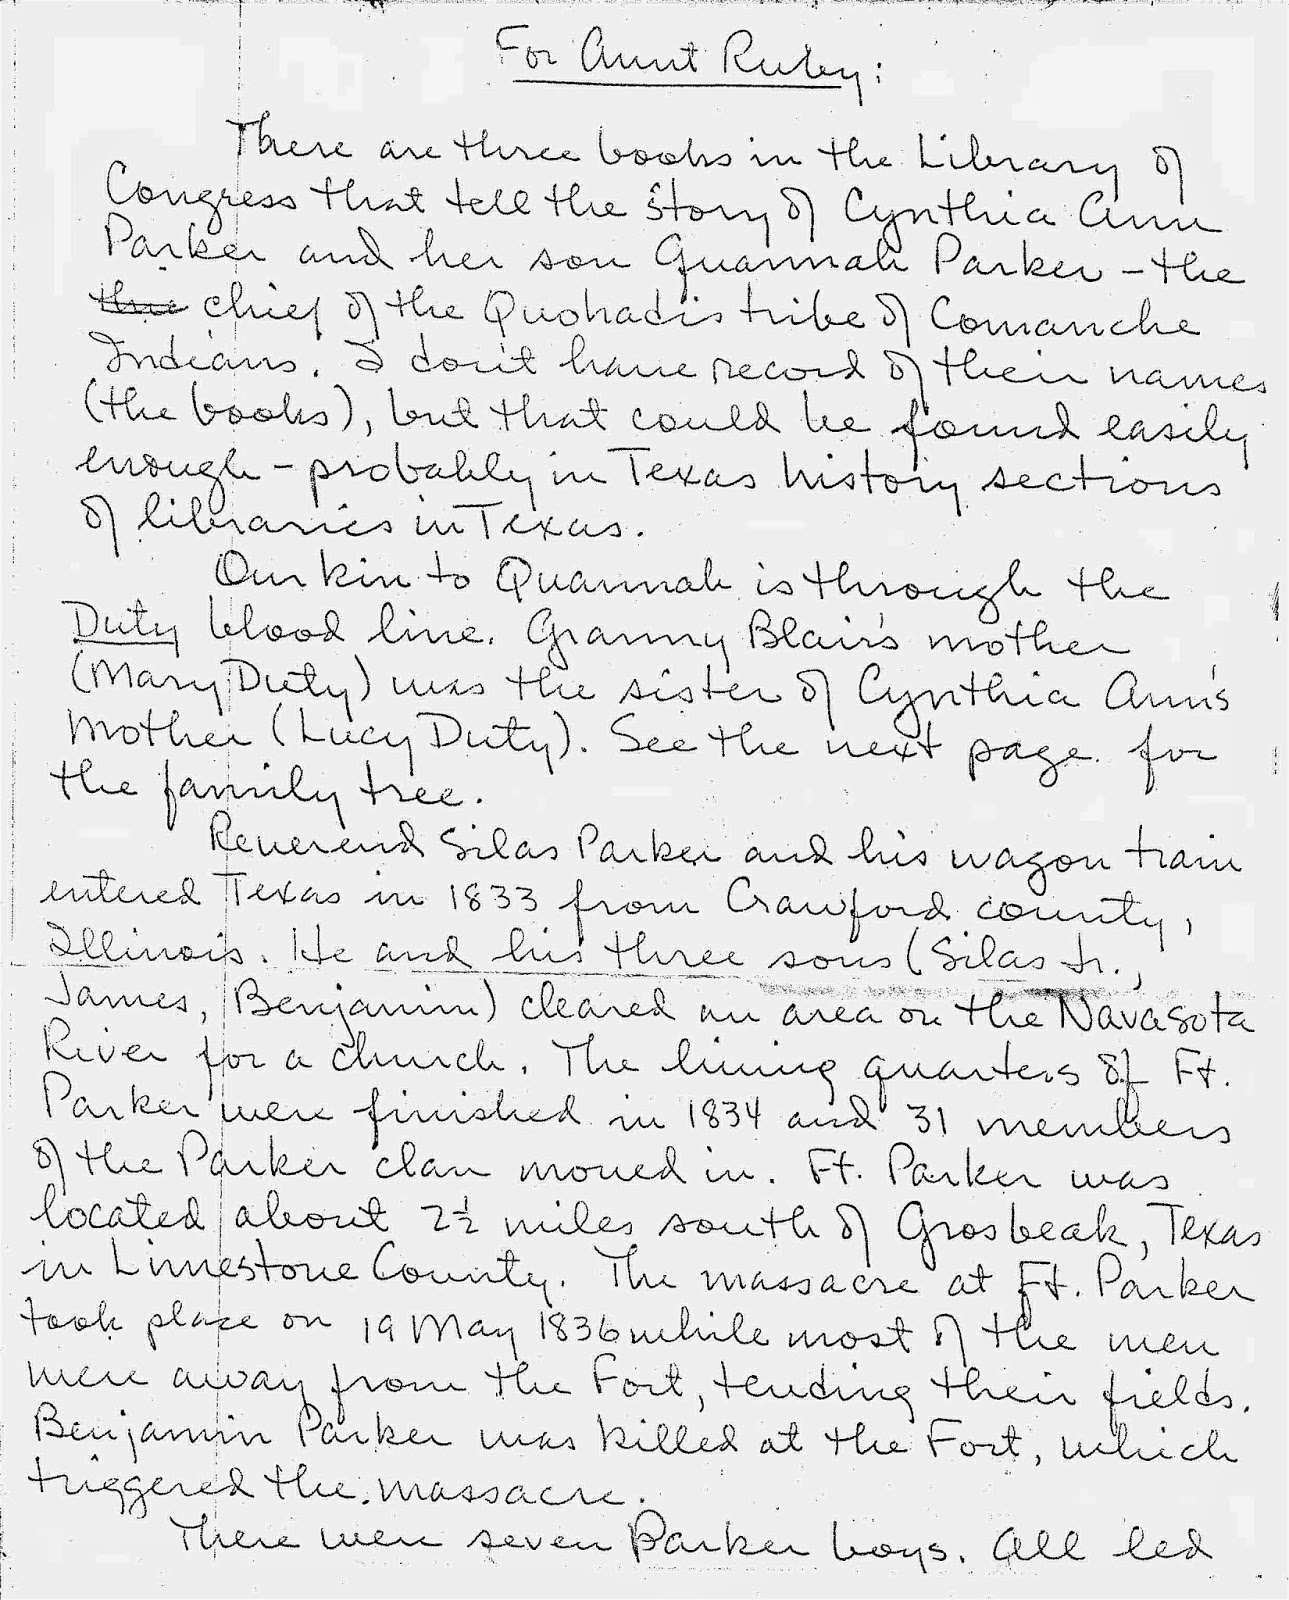 For Aunt Ruby:
There are three books in the Library of
Congress that tell the story of Cynthia Ann
Parker and her son Quannah Parker – the
chief of the Quohadis tribe of Comanche
Indians. I don't have record of their names
(the books), but that could be found easily
enough – probably in Texas history sections
of libraries in Texas.
Our kin to Quannah is through the
Duty blood line. Granny Blair's mother
(Mary Duty) was the sister of Cynthia Ann's
Mother (Lucy Duty). See the next page for
the family tree.
Reverend Silas Parker and his wagon train
entered Texas in 1833 from Crawford county,
Illinois. He and his three sons (Silas Jr.,
James, Benjamin) cleared an area on the Navasota
River for a church. The living quarters of Ft.
Parker were finished in 1834 and 31 members
of the Parker clan moved in. Ft. Parker was
located about 2½ miles south of Grosbeak, Texas
in Limestone County. The massacre at Ft. Parker
took place on 19 May 1836 while most of the men
were away from the Fort, tending their fields.
Benjamin Parker was killed at the Fort, which
triggered the massacre.
There were seven Parker boys. All led